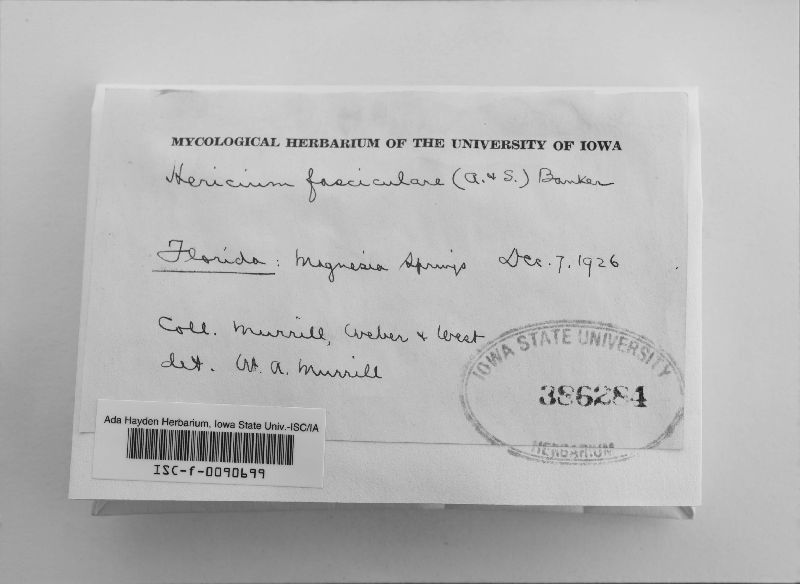 MYCOLOGICAL HERBARIUM OF THE UNIVERSITY OF IOWA
Hericium fasciculare (A. & S.) Banker
Florida: Magnesia Springs Dec. 7, 1926
Coll. Murrill, Weber & West
det. W. A. Murrill
IOWA STATE UNIVERSITY
386284
HERBARIUM
Ada Hayden Herbarium, Iowa State Univ.-ISC/IA
ISC-f-0090699